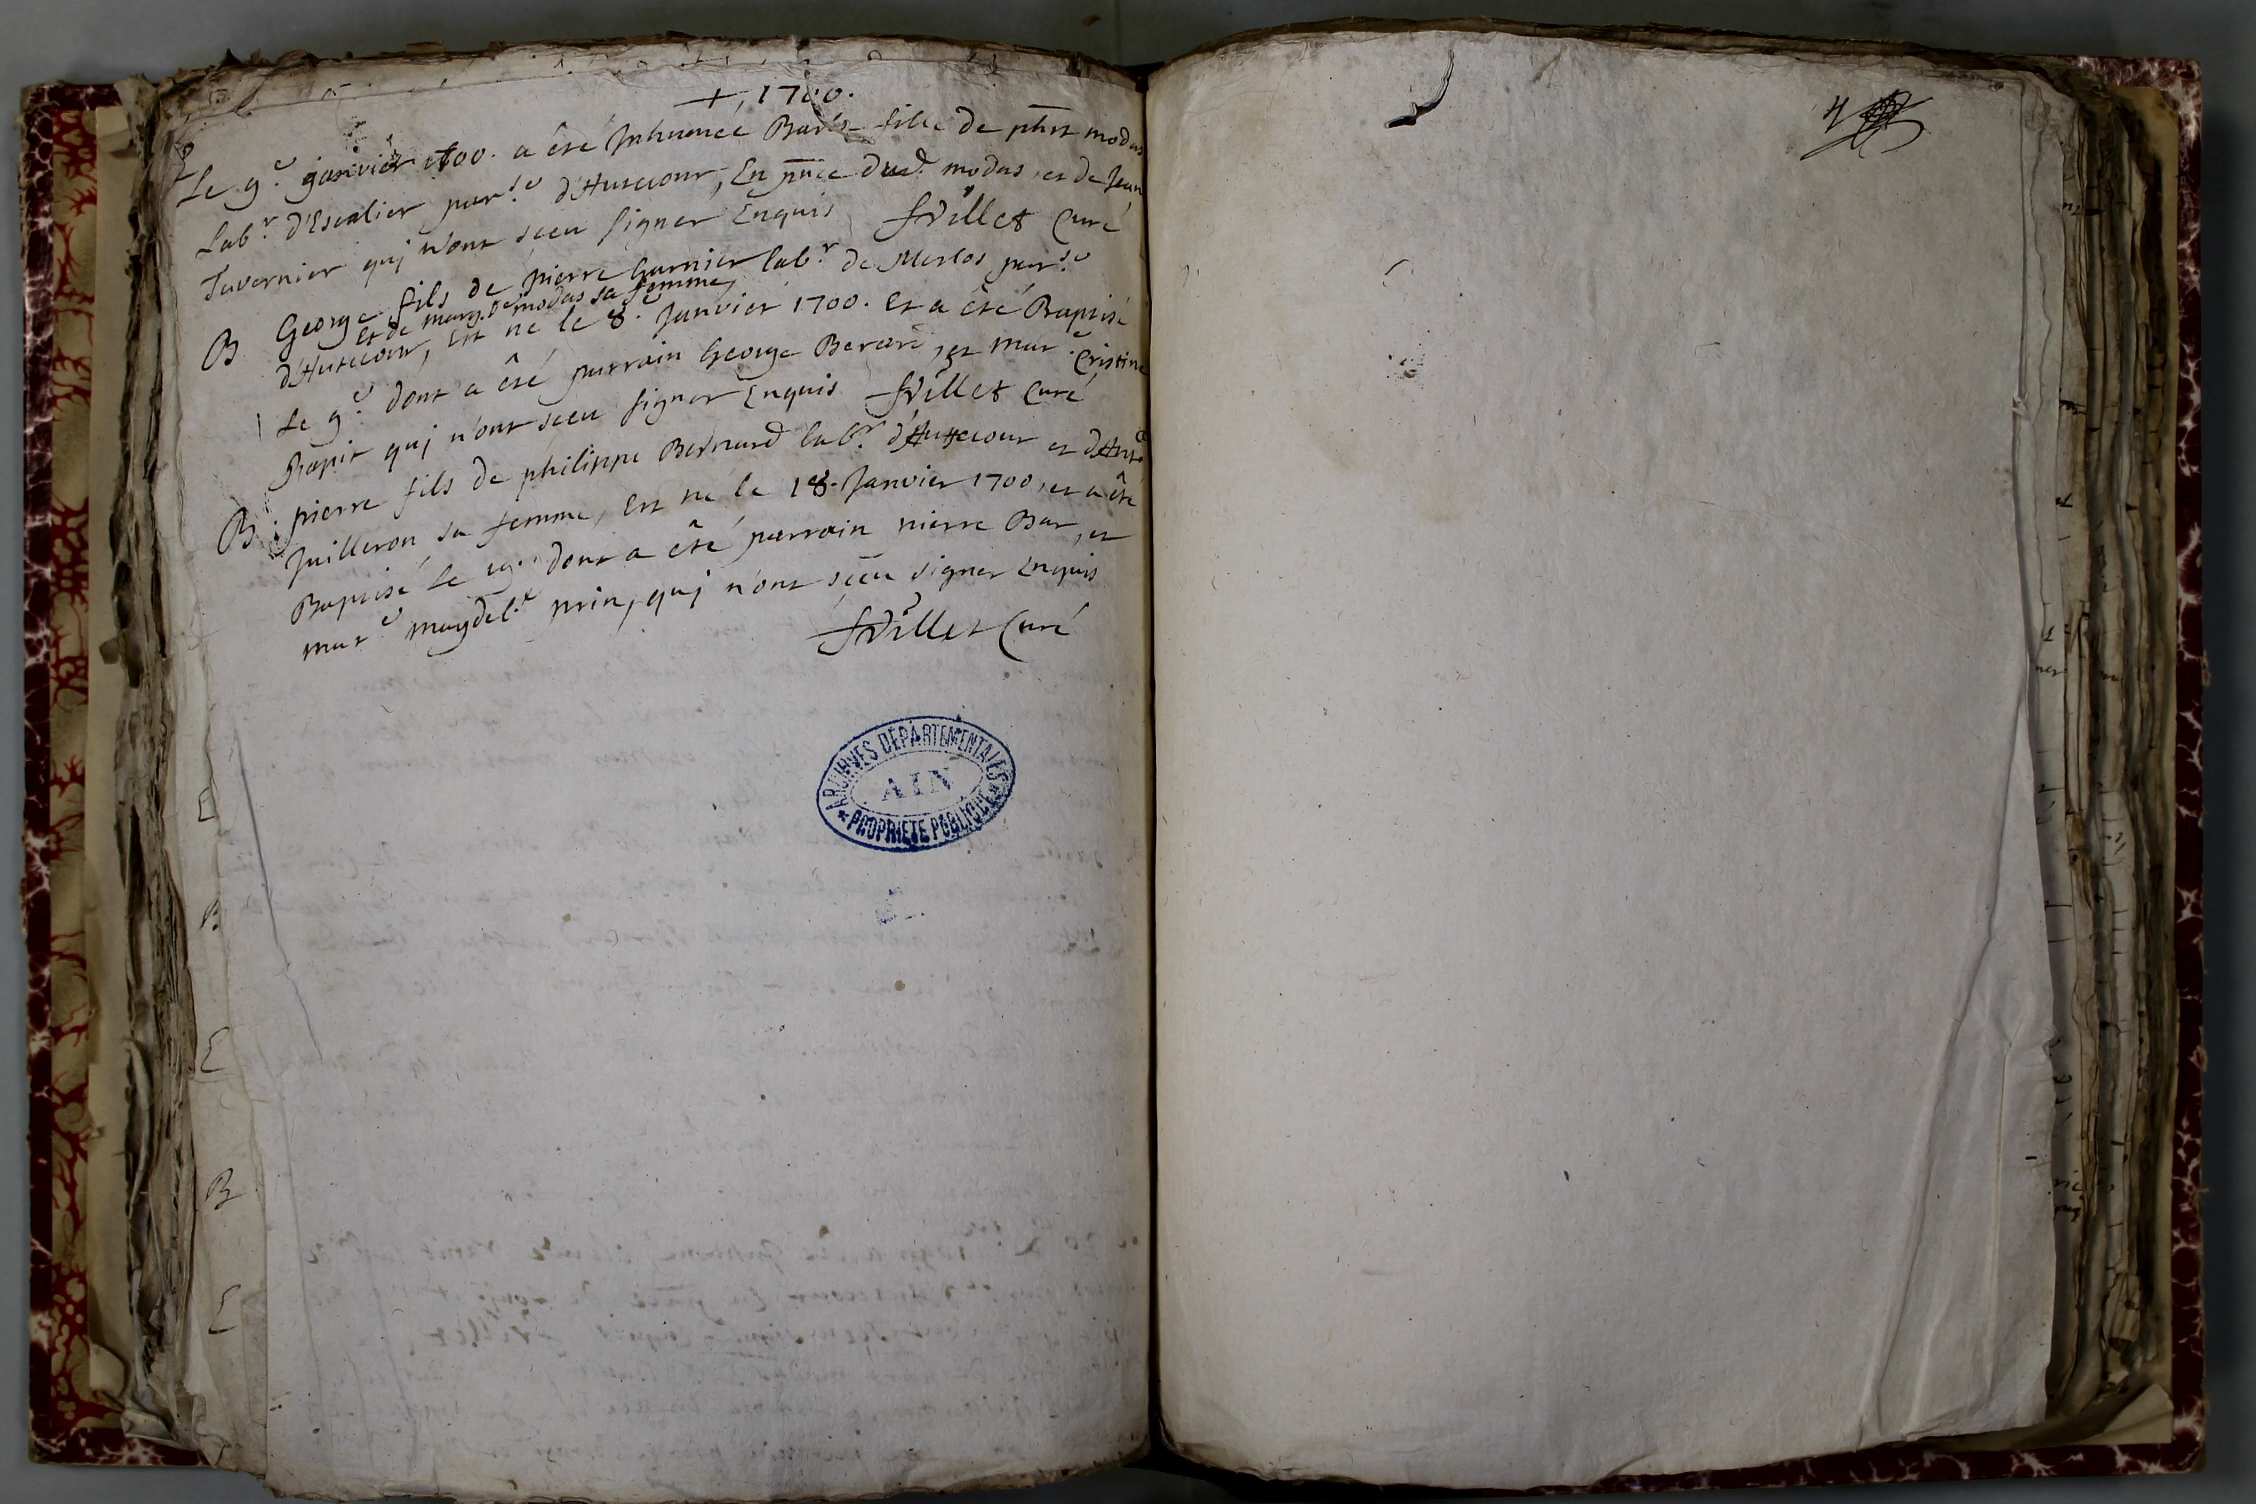 +, 1700.
Le 9.e janvier 1700. a êté Inhumée fille de modas
Lab.r d'Escalier par.se d'Hutecour, En pñce dud. modas, et de Jean
Tavernier quj n'ont sceu signer Enquis fVillet Curé
B George fils de pierre Garnier lab.r de Merlos par.se
et de marg.te modas sa femme,
d'Hutecour, Est né le 8.e Janvier 1700. Et a êté Baptisé
Le 9.e dont a êté parrain George et mar.e Cristine
quj n'ont sceu signer Enquis fVillet Curé
B pierre fils de philippe Bernard lab.r d'Hutecour et
Juilleron sa femme, Est né le 18. Janvier 1700, et a êté
Baptisé le 19. dont a êté parrain pierre Bar, et
mar.e magdel.e prin, quj n'ont sceu signer Enquis
fVillet Curé
ARCHIVES DÉPARTEMENTALES
AIN
* PROPRIÉTÉ PUBLIQUE *
B
E
B
E